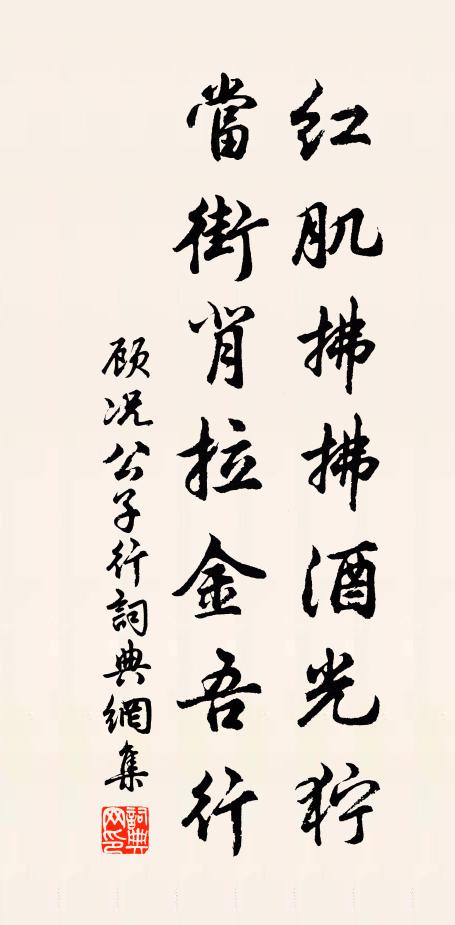 红肌拂拂酒光狞
當街背拉金吾行
顾况公子行詞典網集
詞典网印